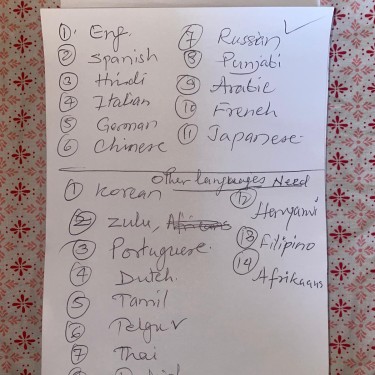 ① Eng.
② Spanish
③ Hindi
④ Italian
⑤ German
⑥ Chinese
⑦ Russian
⑧ Punjabi
⑨ Arabic
⑩ French
⑪ Japanese
Other languages Need
① Korean
② Zulu, Africans
③ Portuguese
④ Dutch
⑤ Tamil
⑥ Telgu
⑦ Thai
⑫ Haryanvi
⑬ Filipino
⑭ Afrikaans